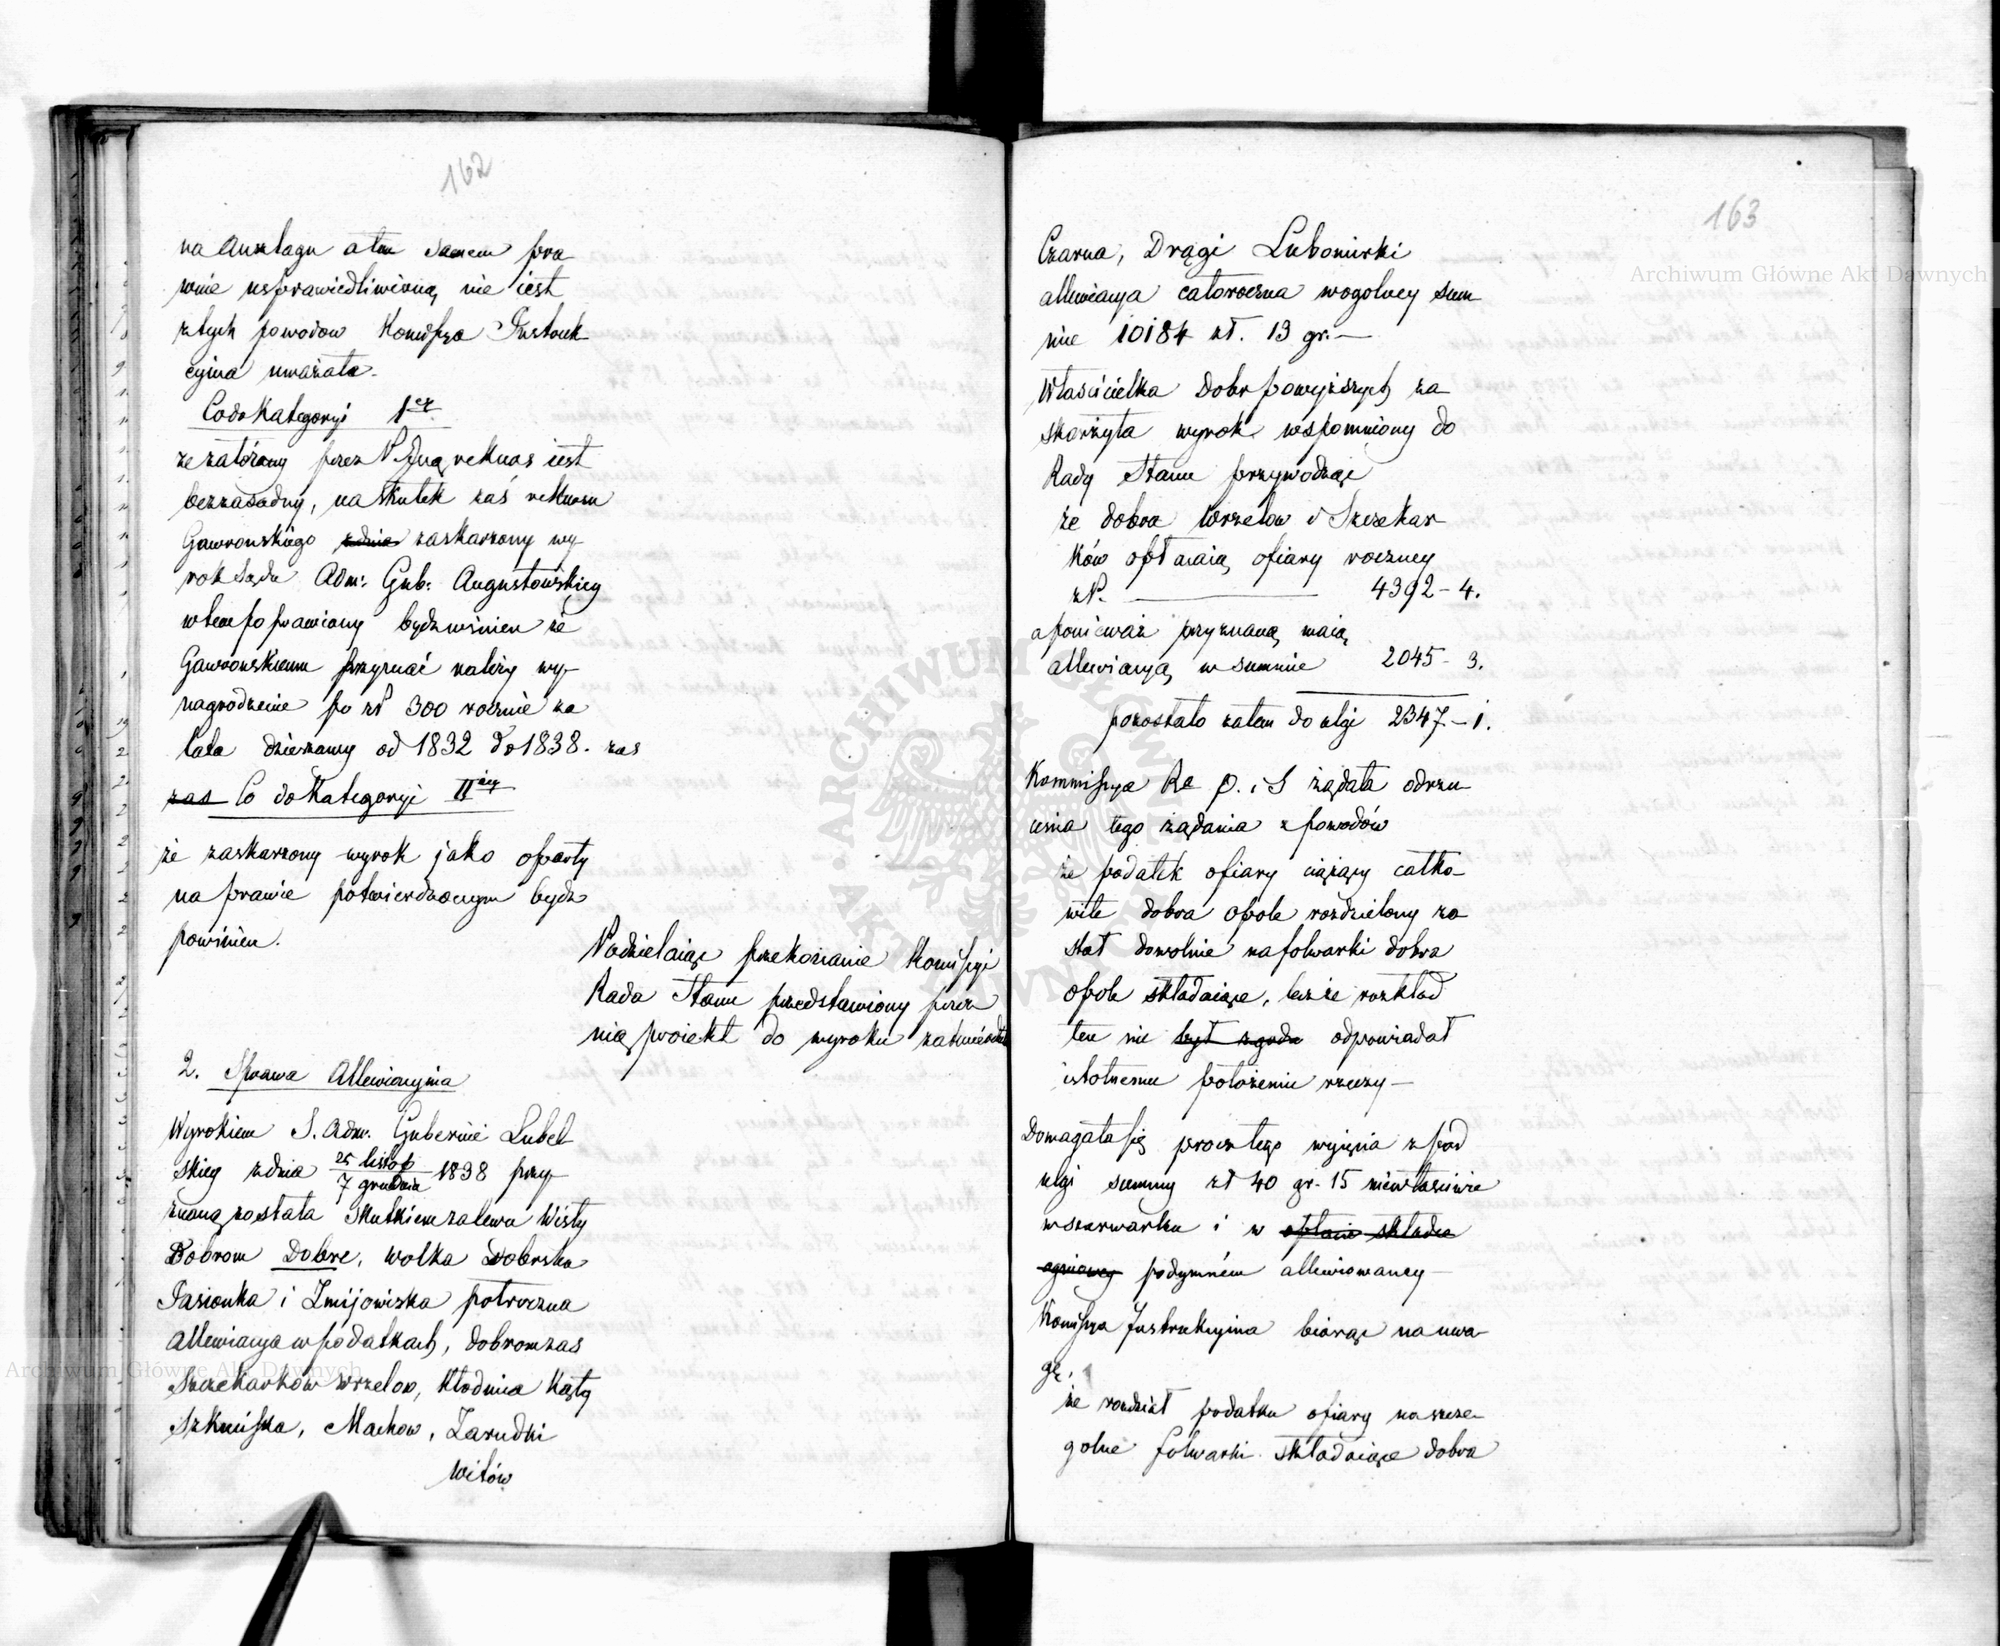 162
na Anszlagu a tem samem pra
wnie usprawiedliwioną nie iest
z tych powodow Kommissya Instruk
cyjna uważała.
Co do Kategoryi 1ey
że założony przez rekurs iest
bezzasadny, na skutek zaś rekursu
Gawronskiego zdnia zaskarzony wy
rok Sądu Adm: Gub: Augustowskiey
w tem poprawiony bydz winien że
Gawronskiemu przyznać należy wy
nagrodzenie po zł 300 rocznie za
lata dzierzawy od 1832 do 1838. zas
zas Co do Kategoryi IIiey
że zaskarzony wyrok jako oparty
na prawie potwierdzonym bydz
powinien.
Podzielaiąc przekonanie Komissyi
Rada Stanu przedstawiony przez
nią proiekt do wyroku zatwierdziła
2. Sprawa Allewiacyjna
Wyrokiem S. Adm. Gubernii Lubel
skiey z dnia 25 listop / 7 grudnia 1838 przy
znaną została skutkiem zalewu Wisły
Dobrom Dobre, Wolka Dobrska
Jasionka i Zmijowiska potroczna
allewiacya w podatkach, dobrom zas
Szczekarkow Wrzelow, Kłodnica Kąty
Szkuciska, Machow, Zarudki
Witów
163
Czarna, Drągi Lubomirki
allewiacya całoroczna w ogolney sum
mie 10184 zł. 13 gr. —
Właścicielka Dobr powyższych za
skarżyła wyrok wspomniony do
Rady Stanu przywodząc
że dobra Wrzelow i Szczekar
ków opłacaią ofiary roczney
zł. — 4392 - 4.
a poniewaz przyznaną maią
allewiacyą w summie 2045 - 3.
pozostało zatem do ulgi 2347 - 1.
Kommissya Rz P. i S żądała odrzu
cenia tego żądania z powodów
że podatek ofiary ciążący całko
wite dobra Opole rozdzielony zo
stał dowolnie na folwarki dobra
Opole składaiące, lecz że rozkład
ten nie był zgodn odpowiadał
istotnemu położeniu rzeczy —
Domagała się procz tego wyjęcia z pod
ulgi summy zł 40 gr. 15 niewłaściwie
w szarwarku i w opłacie składce
ogniowey podymném allewiowaney —
Komissya Instrukcyjna biorąc na uwa
gę,
że rozdział podatku ofiary na szcze
golne folwarki składaiące dobra
Archiwum Główne Akt Dawnych
Archiwum Główne Akt Dawnych